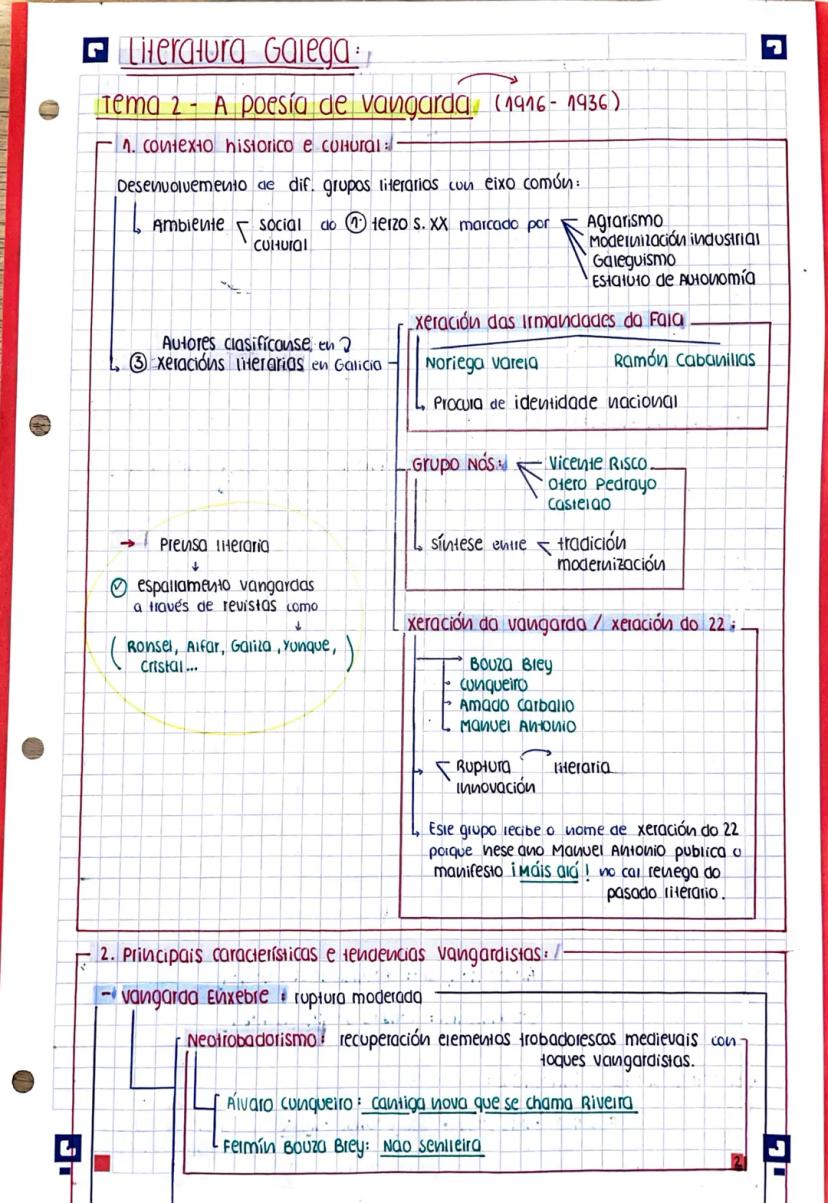 Literatura Galega:
Tema 2 - A poesía de vangarda. (1916 - 1936)
1. Contexto historico e cultural:
Desenvolvemento de dif. grupos literarios cun eixo común:
Ambiente social cultural do 1º terzo S. XX marcado por
Agrarismo
Modernización industrial
Galeguismo
Estatuto de Autonomía
Autores clasifícanse en
③ xeracións literarias en Galicia
Xeración das Irmandades da Fala
Noriega Varela Ramón Cabanillas
Procura de identidade nacional
Grupo Nós:
Vicente Risco
Otero Pedrayo
Castelao
síntese entre tradición
modernización
Prensa literaria
espallamento vangardas
a través de revistas como
( Ronsel, Alfar, Galiza, Yunque,
Cristal... )
Xeración da vangarda / xeración do 22:
Bouza Brey
Cunqueiro
Amado Carballo
Manuel Antonio
Ruptura literaria
innovación
Este grupo recibe o nome de xeración do 22
porque nese ano Manuel Antonio publica o
manifesto ¡Máis alá! no cal renega do
pasado literario.
2. Principais características e tendencias vangardistas:
- Vangarda Enxebre: ruptura moderada
Neotrobadorismo: recuperación elementos trobadorescos medievais con
toques vangardistas.
Álvaro Cunqueiro: Cantiga nova que se chama Riveira
Fermín Bouza Brey: Nao senlleira
2